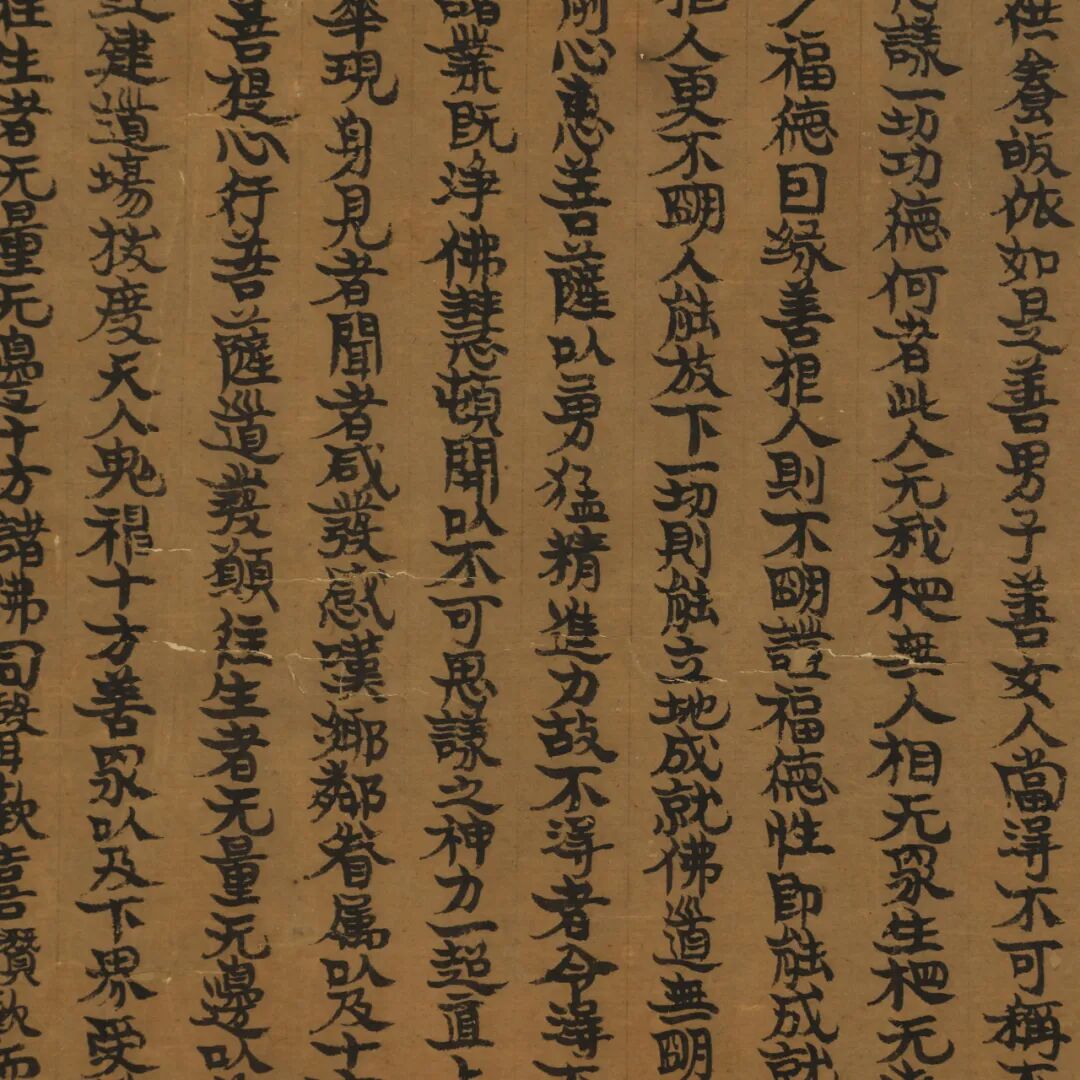 供養皈依如是善男子善女人當得不可稱
議一切功德何者此人无我相無人相无眾生相无
福德因緣善根人則不明證福德性即能成就
根人更不明人能放下一切則能立地成就佛道無明
心惠菩薩以勇猛精進力故不得者令得
諸業既淨佛慧頓開以不可思議之神力一超直上
現身見者聞者咸發感嘆鄉鄰眷属以及十
菩提心行菩薩道發願往生者无量无邊以
建道場拔度天人鬼神十方善眾以及下界受
往生者无量无邊十方諸佛同聲歡喜讚歎而